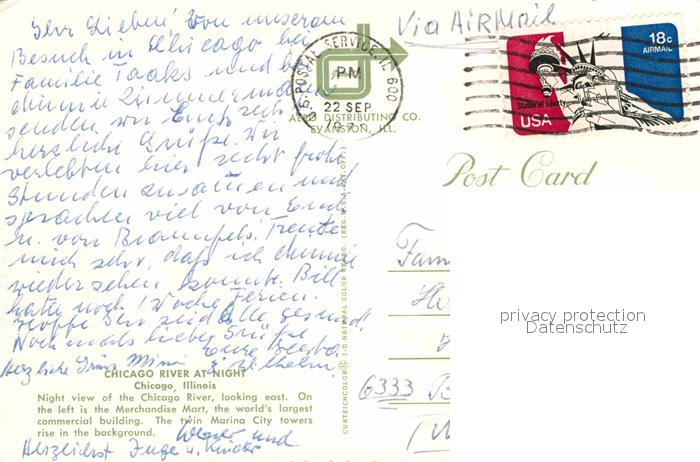 Ihr Lieben! Von unserem
Besuch in Chicago bei
Familie Taaks und bei
Zimmermann
senden wir Euch sehr
herzliche Grüße. Wir
verlebten hier recht frohe
Stunden zusammen und
sprachen viel von Euch
u. von Braunfels. Freute
mich sehr, daß ich
wiedersehen konnte. Bill
hatte noch 1 Woche Ferien.
Hoffe Ihr seid alle gesund,
Nochmals liebe Grüße
Eure
Herzliche Grüße Mimi Wilhelm.
CHICAGO RIVER AT NIGHT
Chicago, Illinois
Night view of the Chicago River, looking east. On
the left is the Merchandise Mart, the world's largest
commercial building. The twin Marina City towers
rise in the background.
Werner und
Herzlichst Inge u. Kinder
Via AirMail
U.S. POSTAL SERVICE, IL 600
PM
22 SEP
DISTRIBUTING CO.
EVANSTON, ILL.
18c
AIRMAIL
Statue of Liberty
USA
Post Card
CURTEICHCOLOR® 3-D NATURAL COLOR REPRO. (REG. U.S.A. PAT. OFF.)
Fam
6333
privacy protection
Datenschutz